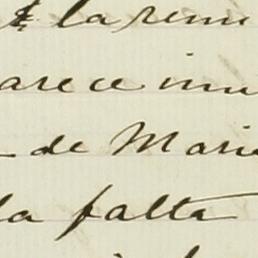 & la remi
arece inu
de Mari
la falta